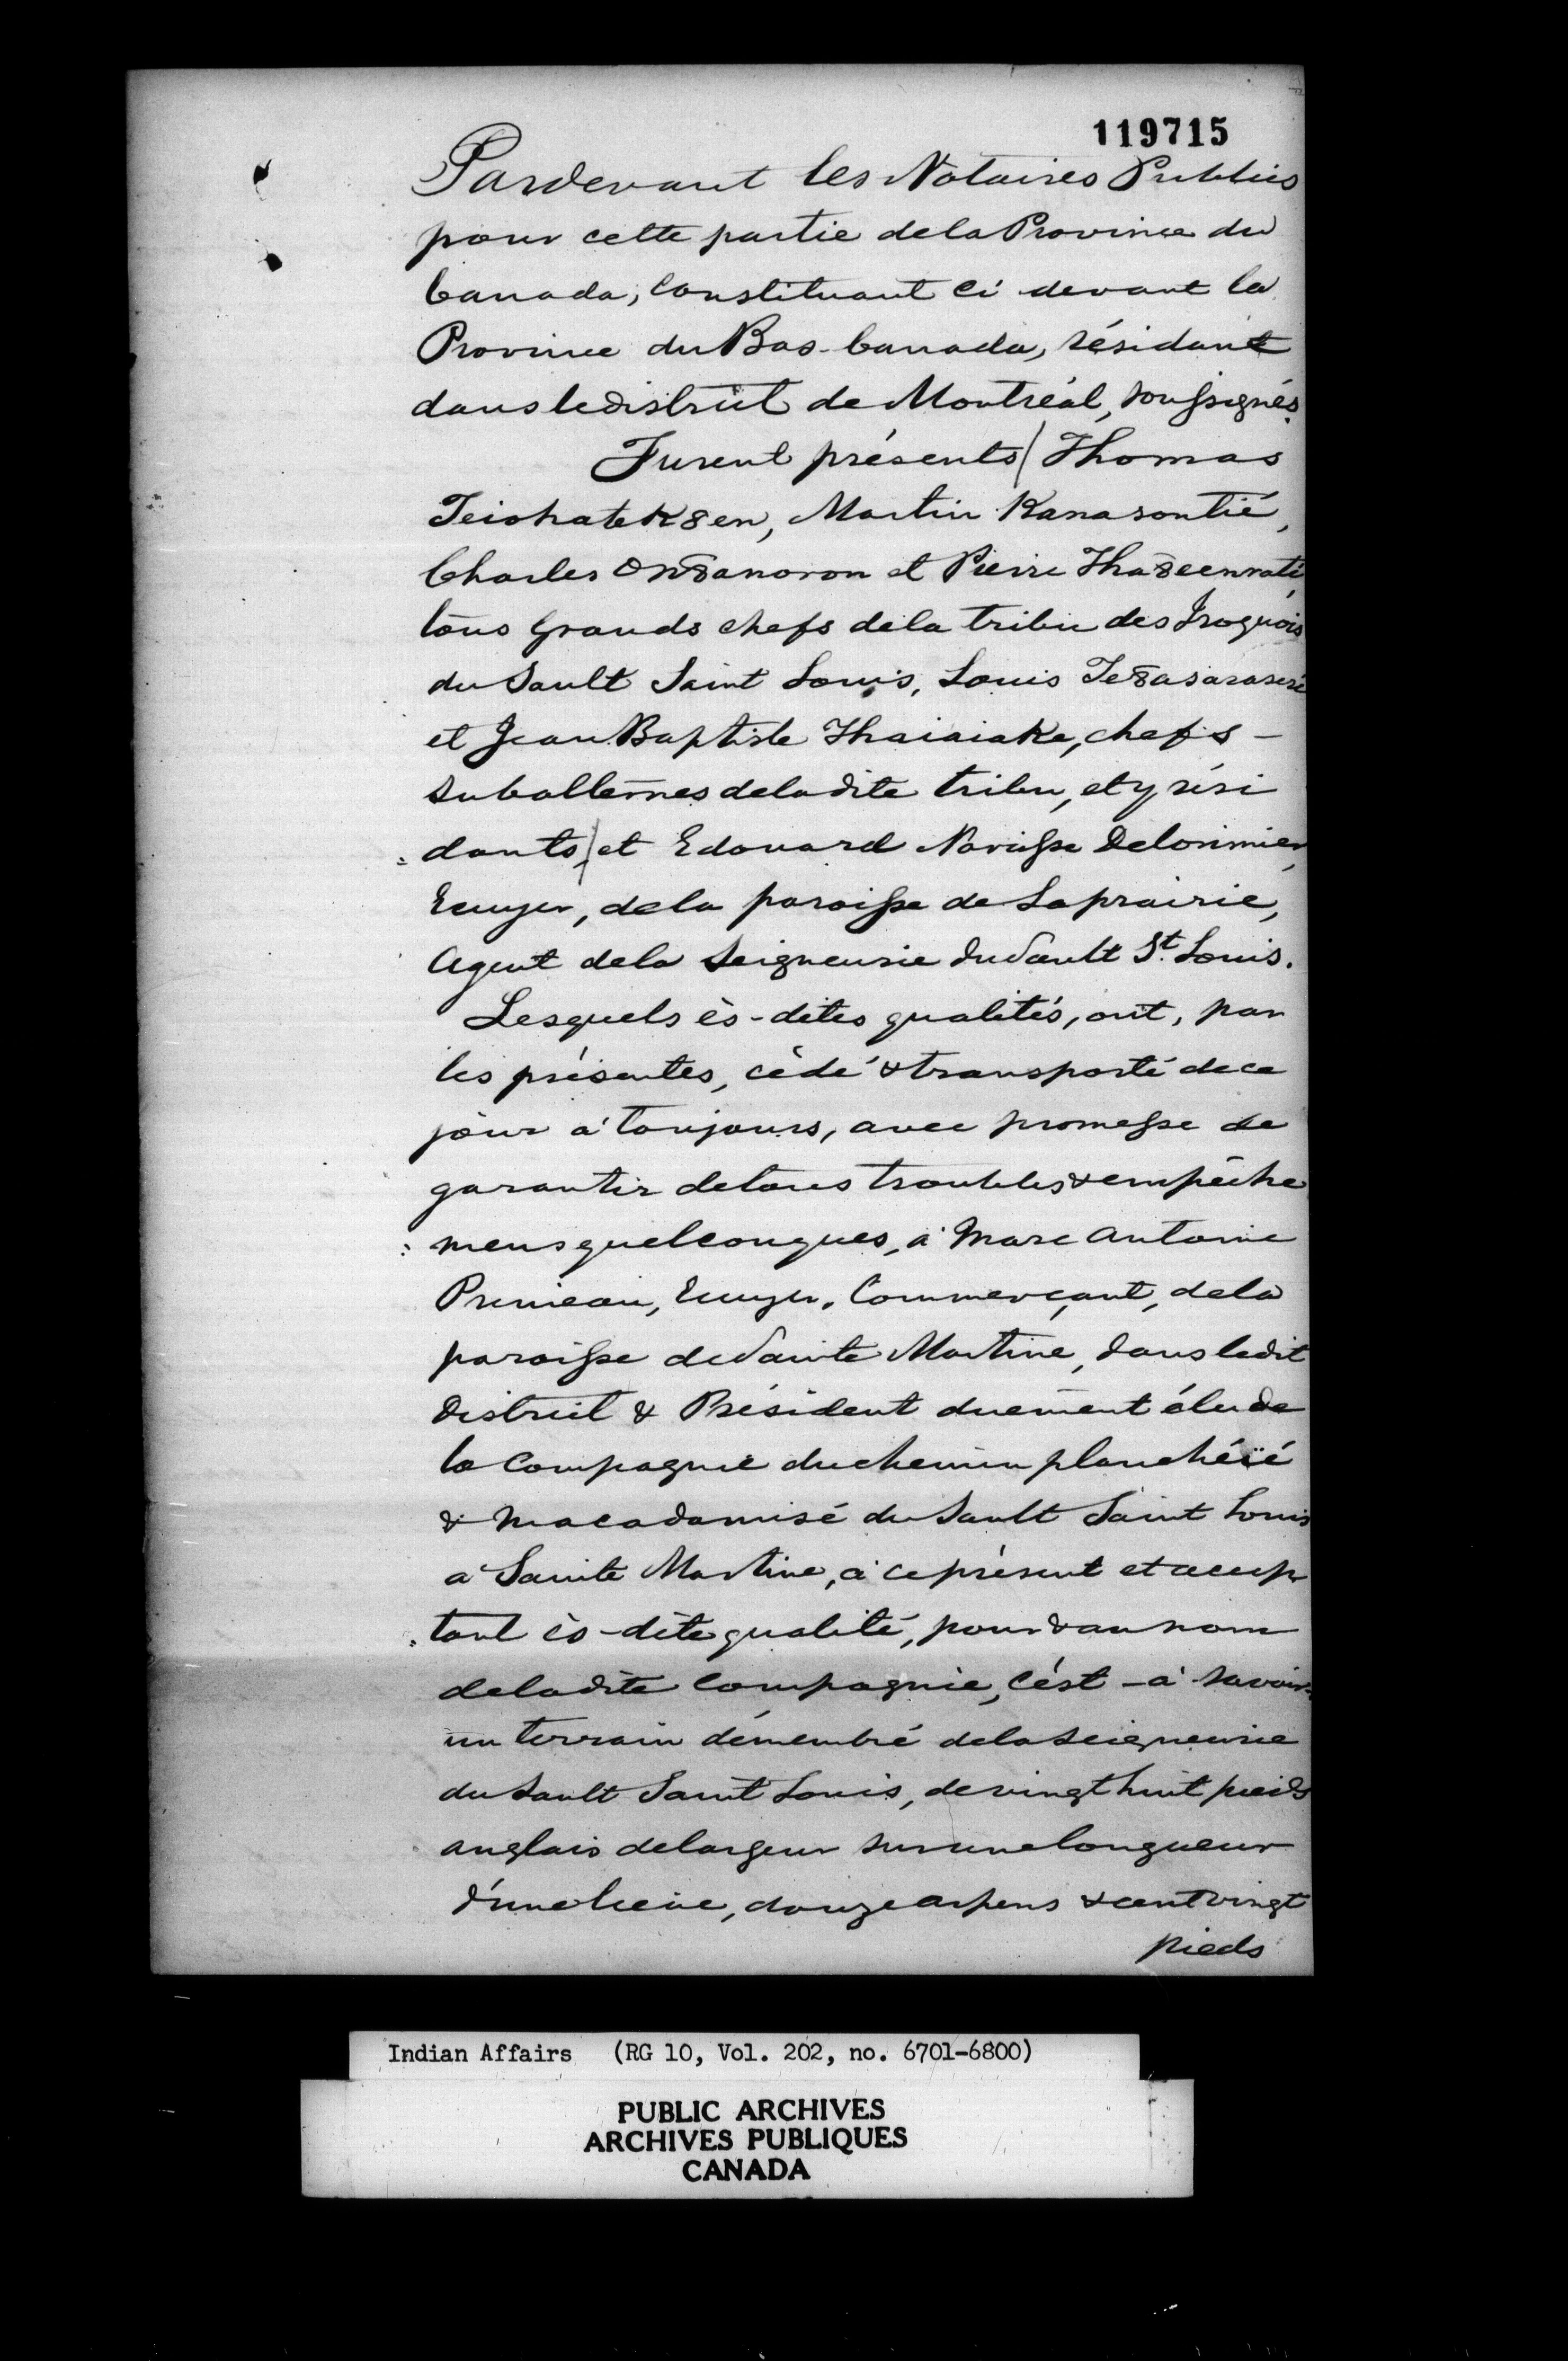 119715
Pardevant les Notaires Publics
pour cette partie de la Province du
Canada, constituant ci devant la
Province du Bas-Canada, résidant
dans le district de Montréal, soussignés.
Furent présents / Thomas
Teiohatek8en, Martin Kanasontié,
Charles On8anoron et Pierre Tha8eenrati,
tous Grands chefs de la tribu des Iroquois
du Sault Saint Louis, Louis Te8asarasere
et Jean Baptiste Thaiaiake, chefs -
subalternes de la dite tribu, et y rési
= dants / et Edouard Narcisse Delorimier,
Ecuyer, de la paroisse de Laprairie,
Agent de la Seigneurie du Sault St. Louis.
Lesquels ès-dites qualités, ont, par
les présentes, cédé & transporté de ce
jour à toujours, avec promesse de
garantir de tous troubles & empêche
= mens quelconques, à Marc Antoine
Primeau, Ecuyer, Commerçant, de la
paroisse de Sainte Martine, dans le dit
District & Président duement élu de
la Compagnie du chemin planchéié
& macadamisé du Sault Saint Louis
à Sainte Martine, à ce présent et accep
= tant ès-dite qualité, pour & au nom
de la dite Compagnie, c'est-à-savoir:
un terrain démembré de la Seigneurie
du Sault Saint Louis, de vingt huit pieds
anglais de largeur sur une longueur
d'une lieue, douze arpens & cent vingt
pieds
Indian Affairs (RG 10, Vol. 202, no. 6701-6800)
PUBLIC ARCHIVES
ARCHIVES PUBLIQUES
CANADA